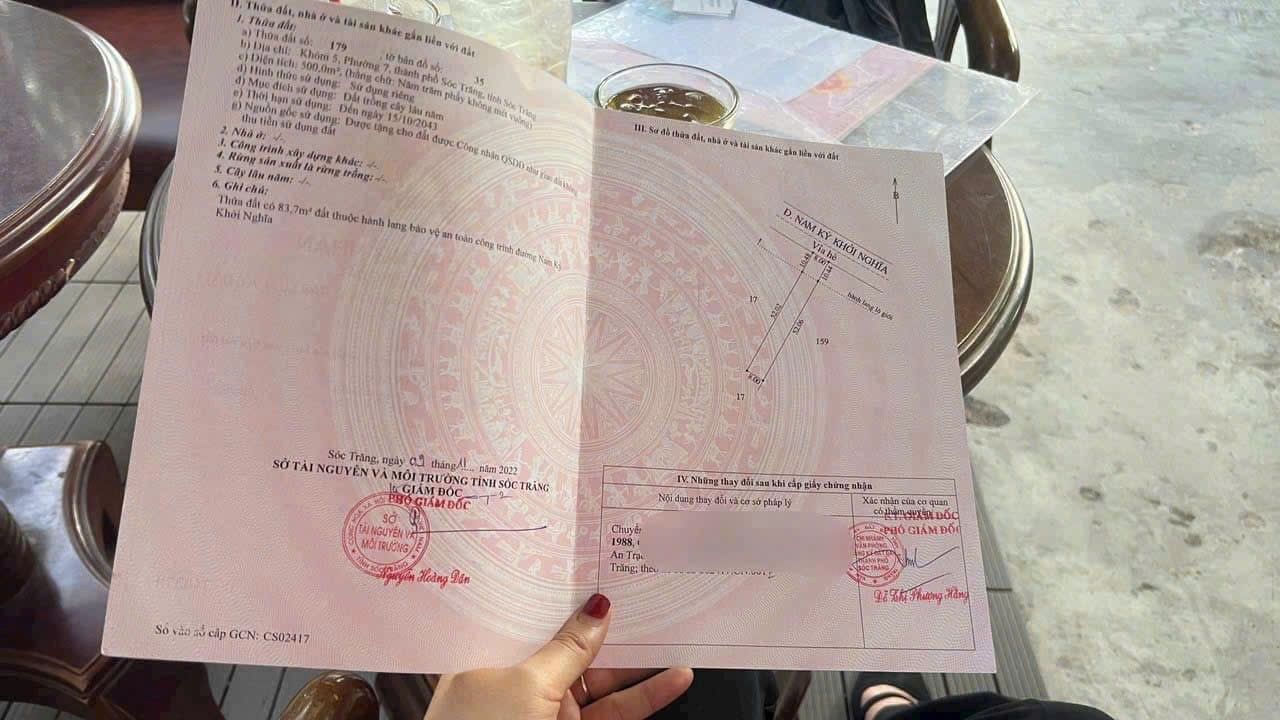 II. Thửa đất, nhà ở và tài sản khác gắn liền với đất
1. Thửa đất:
a) Thửa đất số: 179 , tờ bản đồ số: 35
b) Địa chỉ: Khóm 5, Phường 7, thành phố Sóc Trăng, tỉnh Sóc Trăng
c) Diện tích: 500,0m², (bằng chữ: Năm trăm phẩy không mét vuông)
d) Hình thức sử dụng: Sử dụng riêng
đ) Mục đích sử dụng: Đất trồng cây lâu năm
e) Thời hạn sử dụng: Đến ngày 15/10/2043
g) Nguồn gốc sử dụng: Được tặng cho đất được Công nhận QSDĐ như giao đất không
thu tiền sử dụng đất
2. Nhà ở: -/-
3. Công trình xây dựng khác: -/-
4. Rừng sản xuất là rừng trồng: -/-
5. Cây lâu năm: -/-
6. Ghi chú:
Thửa đất có 83,7m² đất thuộc hành lang bảo vệ an toàn công trình đường Nam Kỳ
Khởi Nghĩa
Sóc Trăng, ngày 09 tháng 11 năm 2022
SỞ TÀI NGUYÊN VÀ MÔI TRƯỜNG TỈNH SÓC TRĂNG
GIÁM ĐỐC
PHÓ GIÁM ĐỐC
SỞ
TÀI NGUYÊN VÀ
MÔI TRƯỜNG
TỈNH SÓC TRĂNG
Nguyễn Hoàng Dân
Số vào sổ cấp GCN: CS02417
III. Sơ đồ thửa đất, nhà ở và tài sản khác gắn liền với đất
B
Đ. NAM KỲ KHỞI NGHĨA
Vỉa hè
8.00
10.48
10.44
hành lang lộ giới
17
52.02
52.06
159
8.00
17
IV. Những thay đổi sau khi cấp giấy chứng nhận
Nội dung thay đổi và cơ sở pháp lý
Xác nhận của cơ quan
có thẩm quyền
KT. GIÁM ĐỐC
PHÓ GIÁM ĐỐC
1988,
An Trạ
Trăng; theo
CHI NHÁNH
VĂN PHÒNG
ĐĂNG KÝ ĐẤT ĐAI
THÀNH PHỐ
SÓC TRĂNG
Đỗ Thị Phượng Hằng